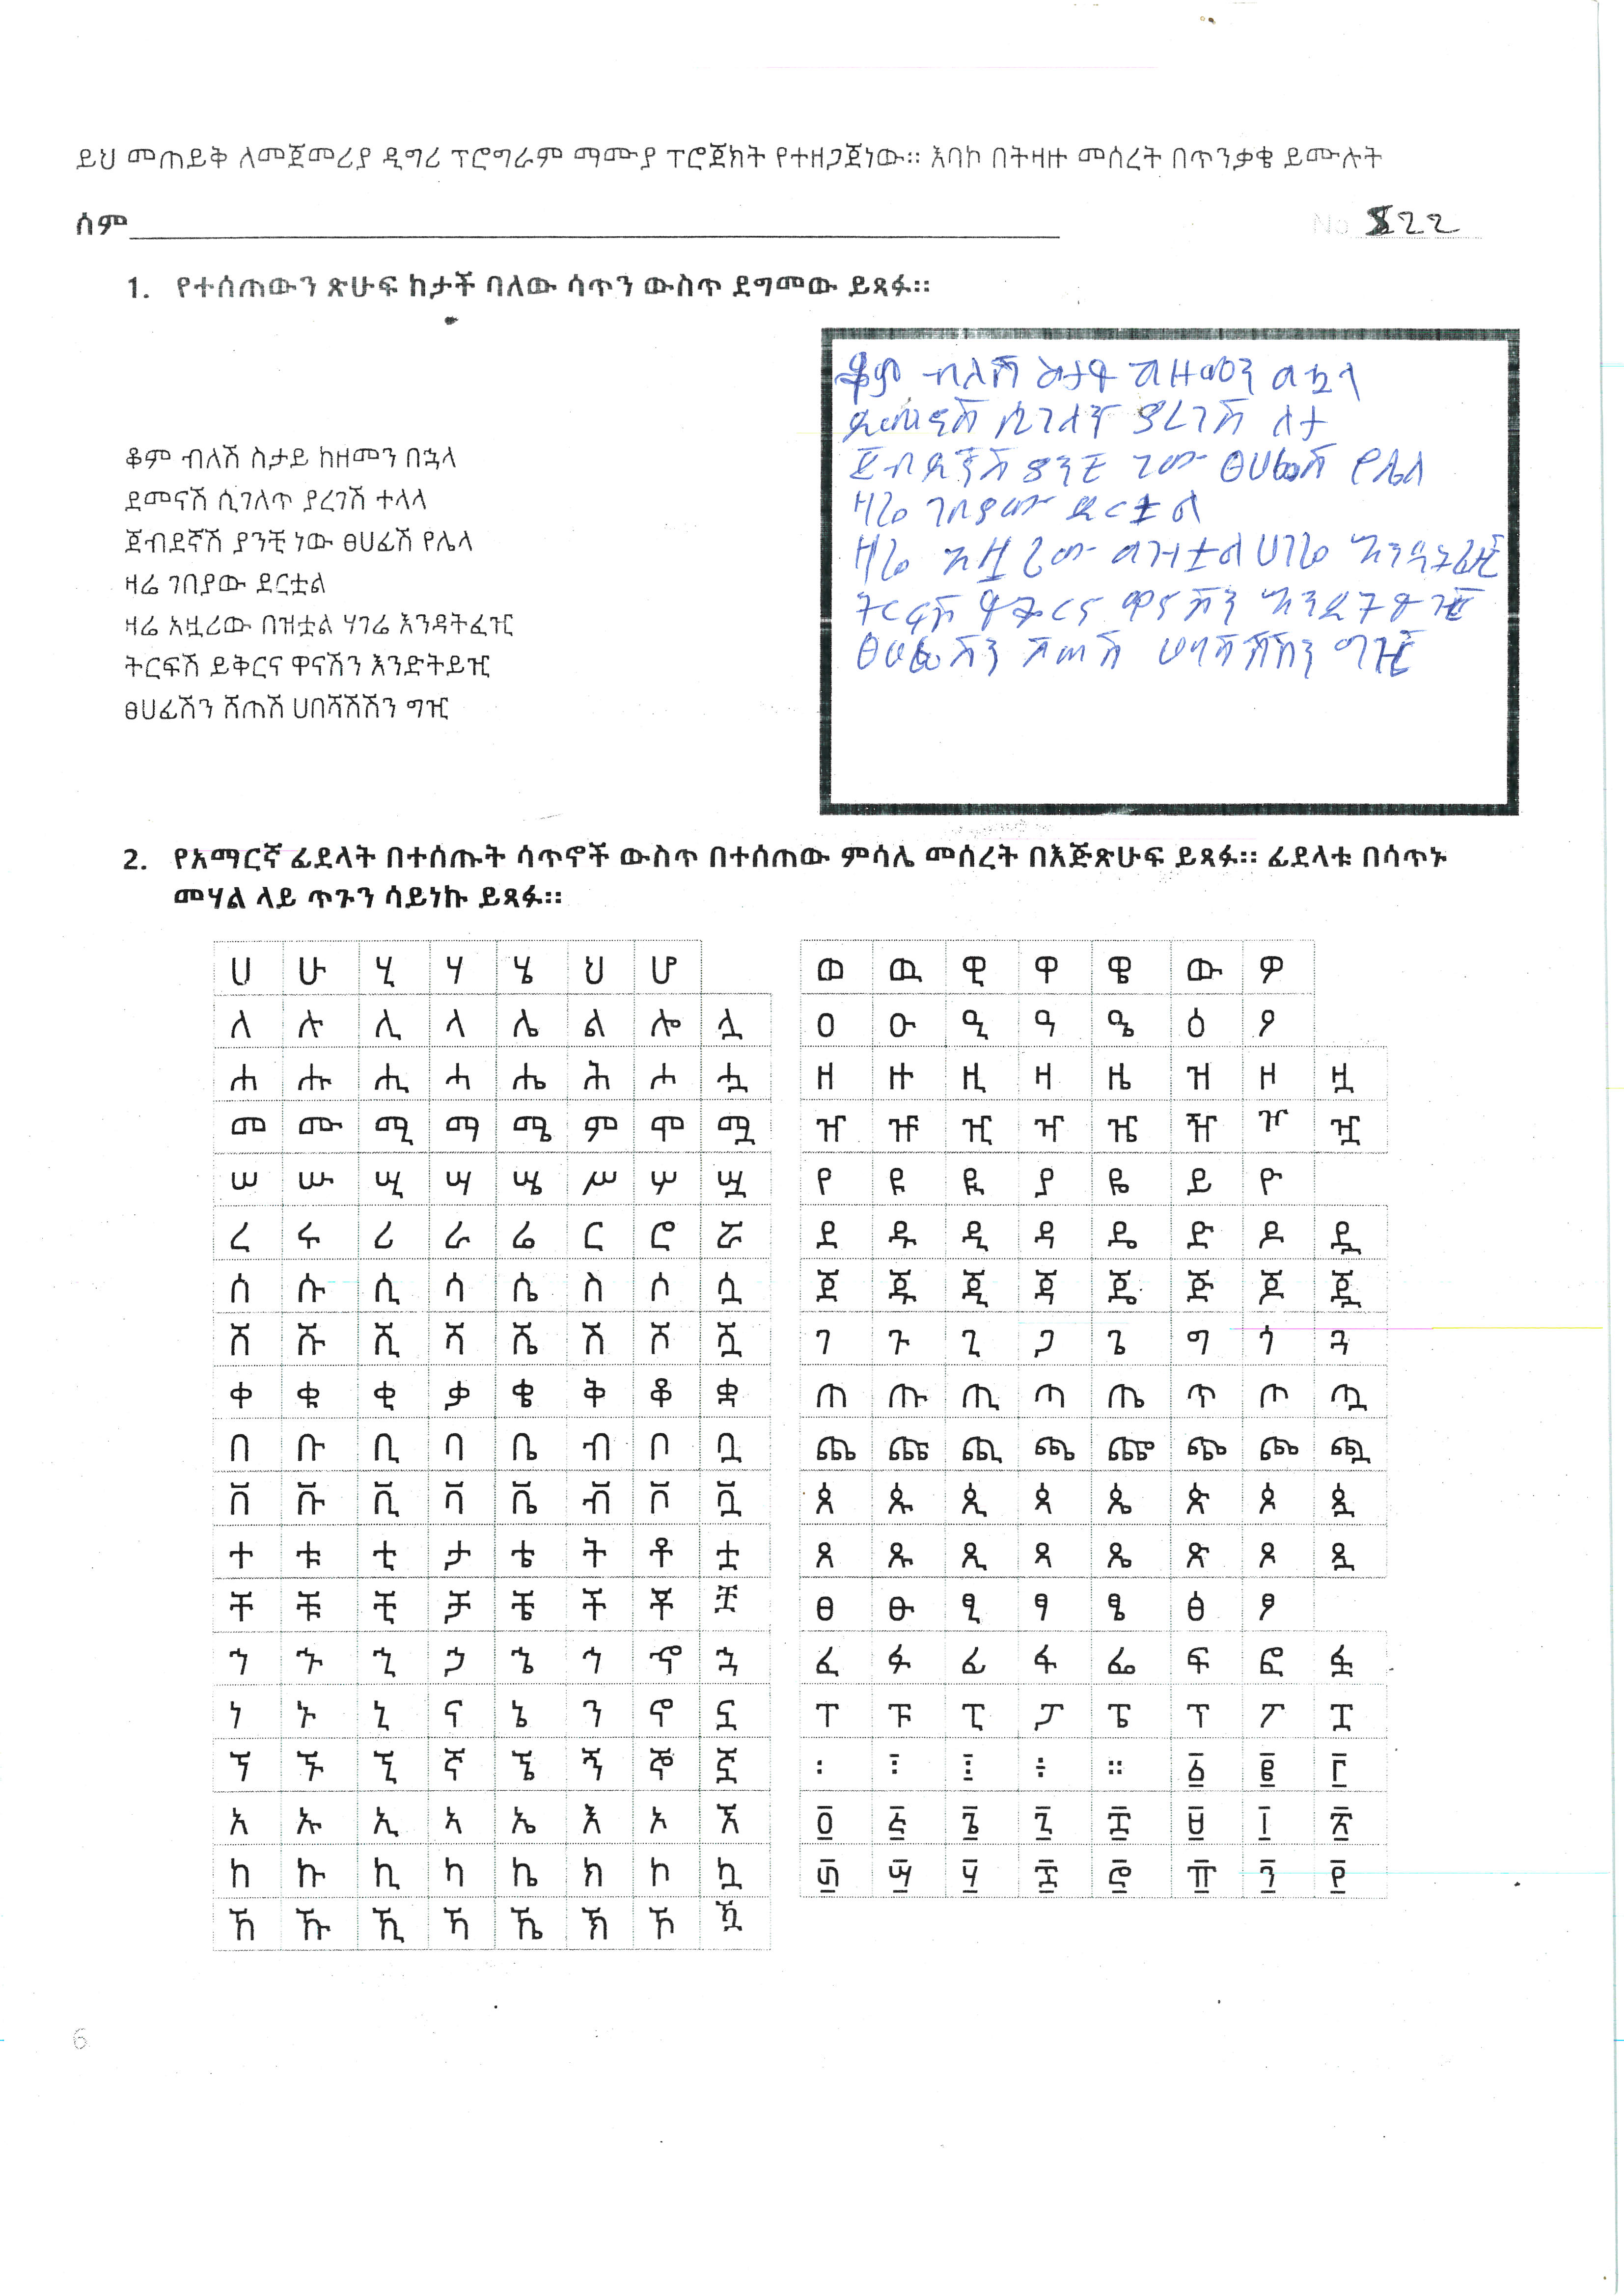 ይህ መጠይቅ ለመጀመሪያ ዲግሪ ፕሮግራም ማሙያ ፕሮጀክት የተዘጋጀነው። እባኮ በትዛዙ መሰረት በጥንቃቄ ይሙሉት
ስም No 822
1. የተሰጠውን ጽሁፍ ከታች ባለው ሳጥን ውስጥ ደግመው ይጻፉ።
ቆም ብለሽ ስታይ ከዘመን በኋላ
ደመናሽ ሲገለጥ ያረገሽ ተላላ
ጀብደኛሽ ያንቺ ነው ፀሀፊሽ የሌላ
ዛሬ ገበያው ደርቷል
ዛሬ አዟሪው በዝቷል ሃገሬ እንዳትፈዢ
ትርፍሽ ይቅርና ዋናሽን እንድትይዢ
ፀሀፊሽን ሸጠሽ ሀበሻሽሽን ግዢ
ቆም ብለሽ ስታይ ከዘመን በኋላ
ደመናሽ ሲገለጥ ያረገሽ
ጀብደኛሽ ያንቺ ነው ፀሀፊሽ የሌላ
ዛሬ ገበያው ደርቷል
ዛሬ አዟሪው በዝቷል ሀገሬ እንዳትፈዢ
ትርፍሽ ይቅርና ዋናሽን እንድትይዢ
ፀሀፊሽን ሸጠሽ ሀበሻሽሽን ግዢ
2. የአማርኛ ፊደላት በተሰጡት ሳጥኖች ውስጥ በተሰጠው ምሳሌ መሰረት በእጅጽሁፍ ይጻፉ። ፊደላቱ በሳጥኑ
መሃል ላይ ጥጉን ሳይነኩ ይጻፉ።
ሀ ሁ ሂ ሃ ሄ ህ ሆ
ለ ሉ ሊ ላ ሌ ል ሎ ሏ
ሐ ሑ ሒ ሓ ሔ ሕ ሖ ሗ
መ ሙ ሚ ማ ሜ ም ሞ ሟ
ሠ ሡ ሢ ሣ ሤ ሥ ሦ ሧ
ረ ሩ ሪ ራ ሬ ር ሮ ሯ
ሰ ሱ ሲ ሳ ሴ ስ ሶ ሷ
ሸ ሹ ሺ ሻ ሼ ሽ ሾ ሿ
ቀ ቁ ቂ ቃ ቄ ቅ ቆ ቋ
በ ቡ ቢ ባ ቤ ብ ቦ ቧ
ቨ ቩ ቪ ቫ ቬ ቭ ቮ ቯ
ተ ቱ ቲ ታ ቴ ት ቶ ቷ
ቸ ቹ ቺ ቻ ቼ ች ቾ ቿ
ኀ ኁ ኂ ኃ ኄ ኅ ኆ ኋ
ነ ኑ ኒ ና ኔ ን ኖ ኗ
ኘ ኙ ኚ ኛ ኜ ኝ ኞ ኟ
አ ኡ ኢ ኣ ኤ እ ኦ ኧ
ከ ኩ ኪ ካ ኬ ክ ኮ ኳ
ኸ ኹ ኺ ኻ ኼ ኽ ኾ ዃ
ወ ዉ ዊ ዋ ዌ ው ዎ
ዐ ዑ ዒ ዓ ዔ ዕ ዖ
ዘ ዙ ዚ ዛ ዜ ዝ ዞ ዟ
ዠ ዡ ዢ ዣ ዤ ዥ ዦ ዧ
የ ዩ ዪ ያ ዬ ይ ዮ
ደ ዱ ዲ ዳ ዴ ድ ዶ ዷ
ጀ ጁ ጂ ጃ ጄ ጅ ጆ ጇ
ገ ጉ ጊ ጋ ጌ ግ ጎ ጓ
ጠ ጡ ጢ ጣ ጤ ጥ ጦ ጧ
ጨ ጩ ጪ ጫ ጬ ጭ ጮ ጯ
ጰ ጱ ጲ ጳ ጴ ጵ ጶ ጷ
ጸ ጹ ጺ ጻ ጼ ጽ ጾ ጿ
ፀ ፁ ፂ ፃ ፄ ፅ ፆ
ፈ ፉ ፊ ፋ ፌ ፍ ፎ ፏ
ፐ ፑ ፒ ፓ ፔ ፕ ፖ ፗ
፡ ፣ ፤ ፥ ። ፩ ፪ ፫
፬ ፭ ፮ ፯ ፰ ፱ ፲ ፳
፴ ፵ ፶ ፷ ፸ ፹ ፺ ፻
6